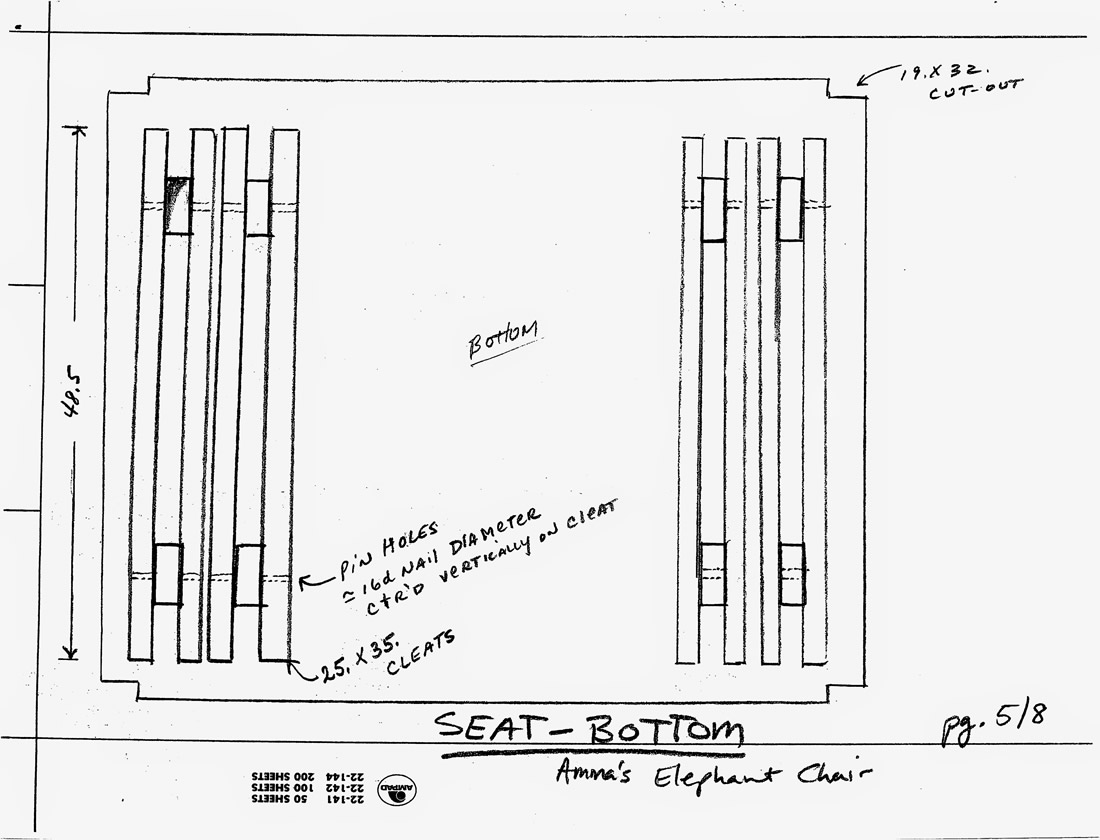 19. X 32.
CUT-OUT
48.5
BOTTOM
PIN HOLES
≃ 16d NAIL DIAMETER
CTR'D VERTICALLY ON CLEAT
25. X 35.
CLEATS
SEAT-BOTTOM
pg. 5/8
Amma's Elephant Chair
22-141 50 SHEETS
22-142 100 SHEETS
22-144 200 SHEETS
AMPAD